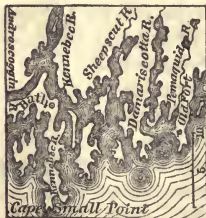 Androscoggin
R.
Kennebec R.
Sheepscut R.
Damariscotta R.
Pemaquid R.
Old Fort
Bath
Kennebec R.
5
10
Cape Small Point